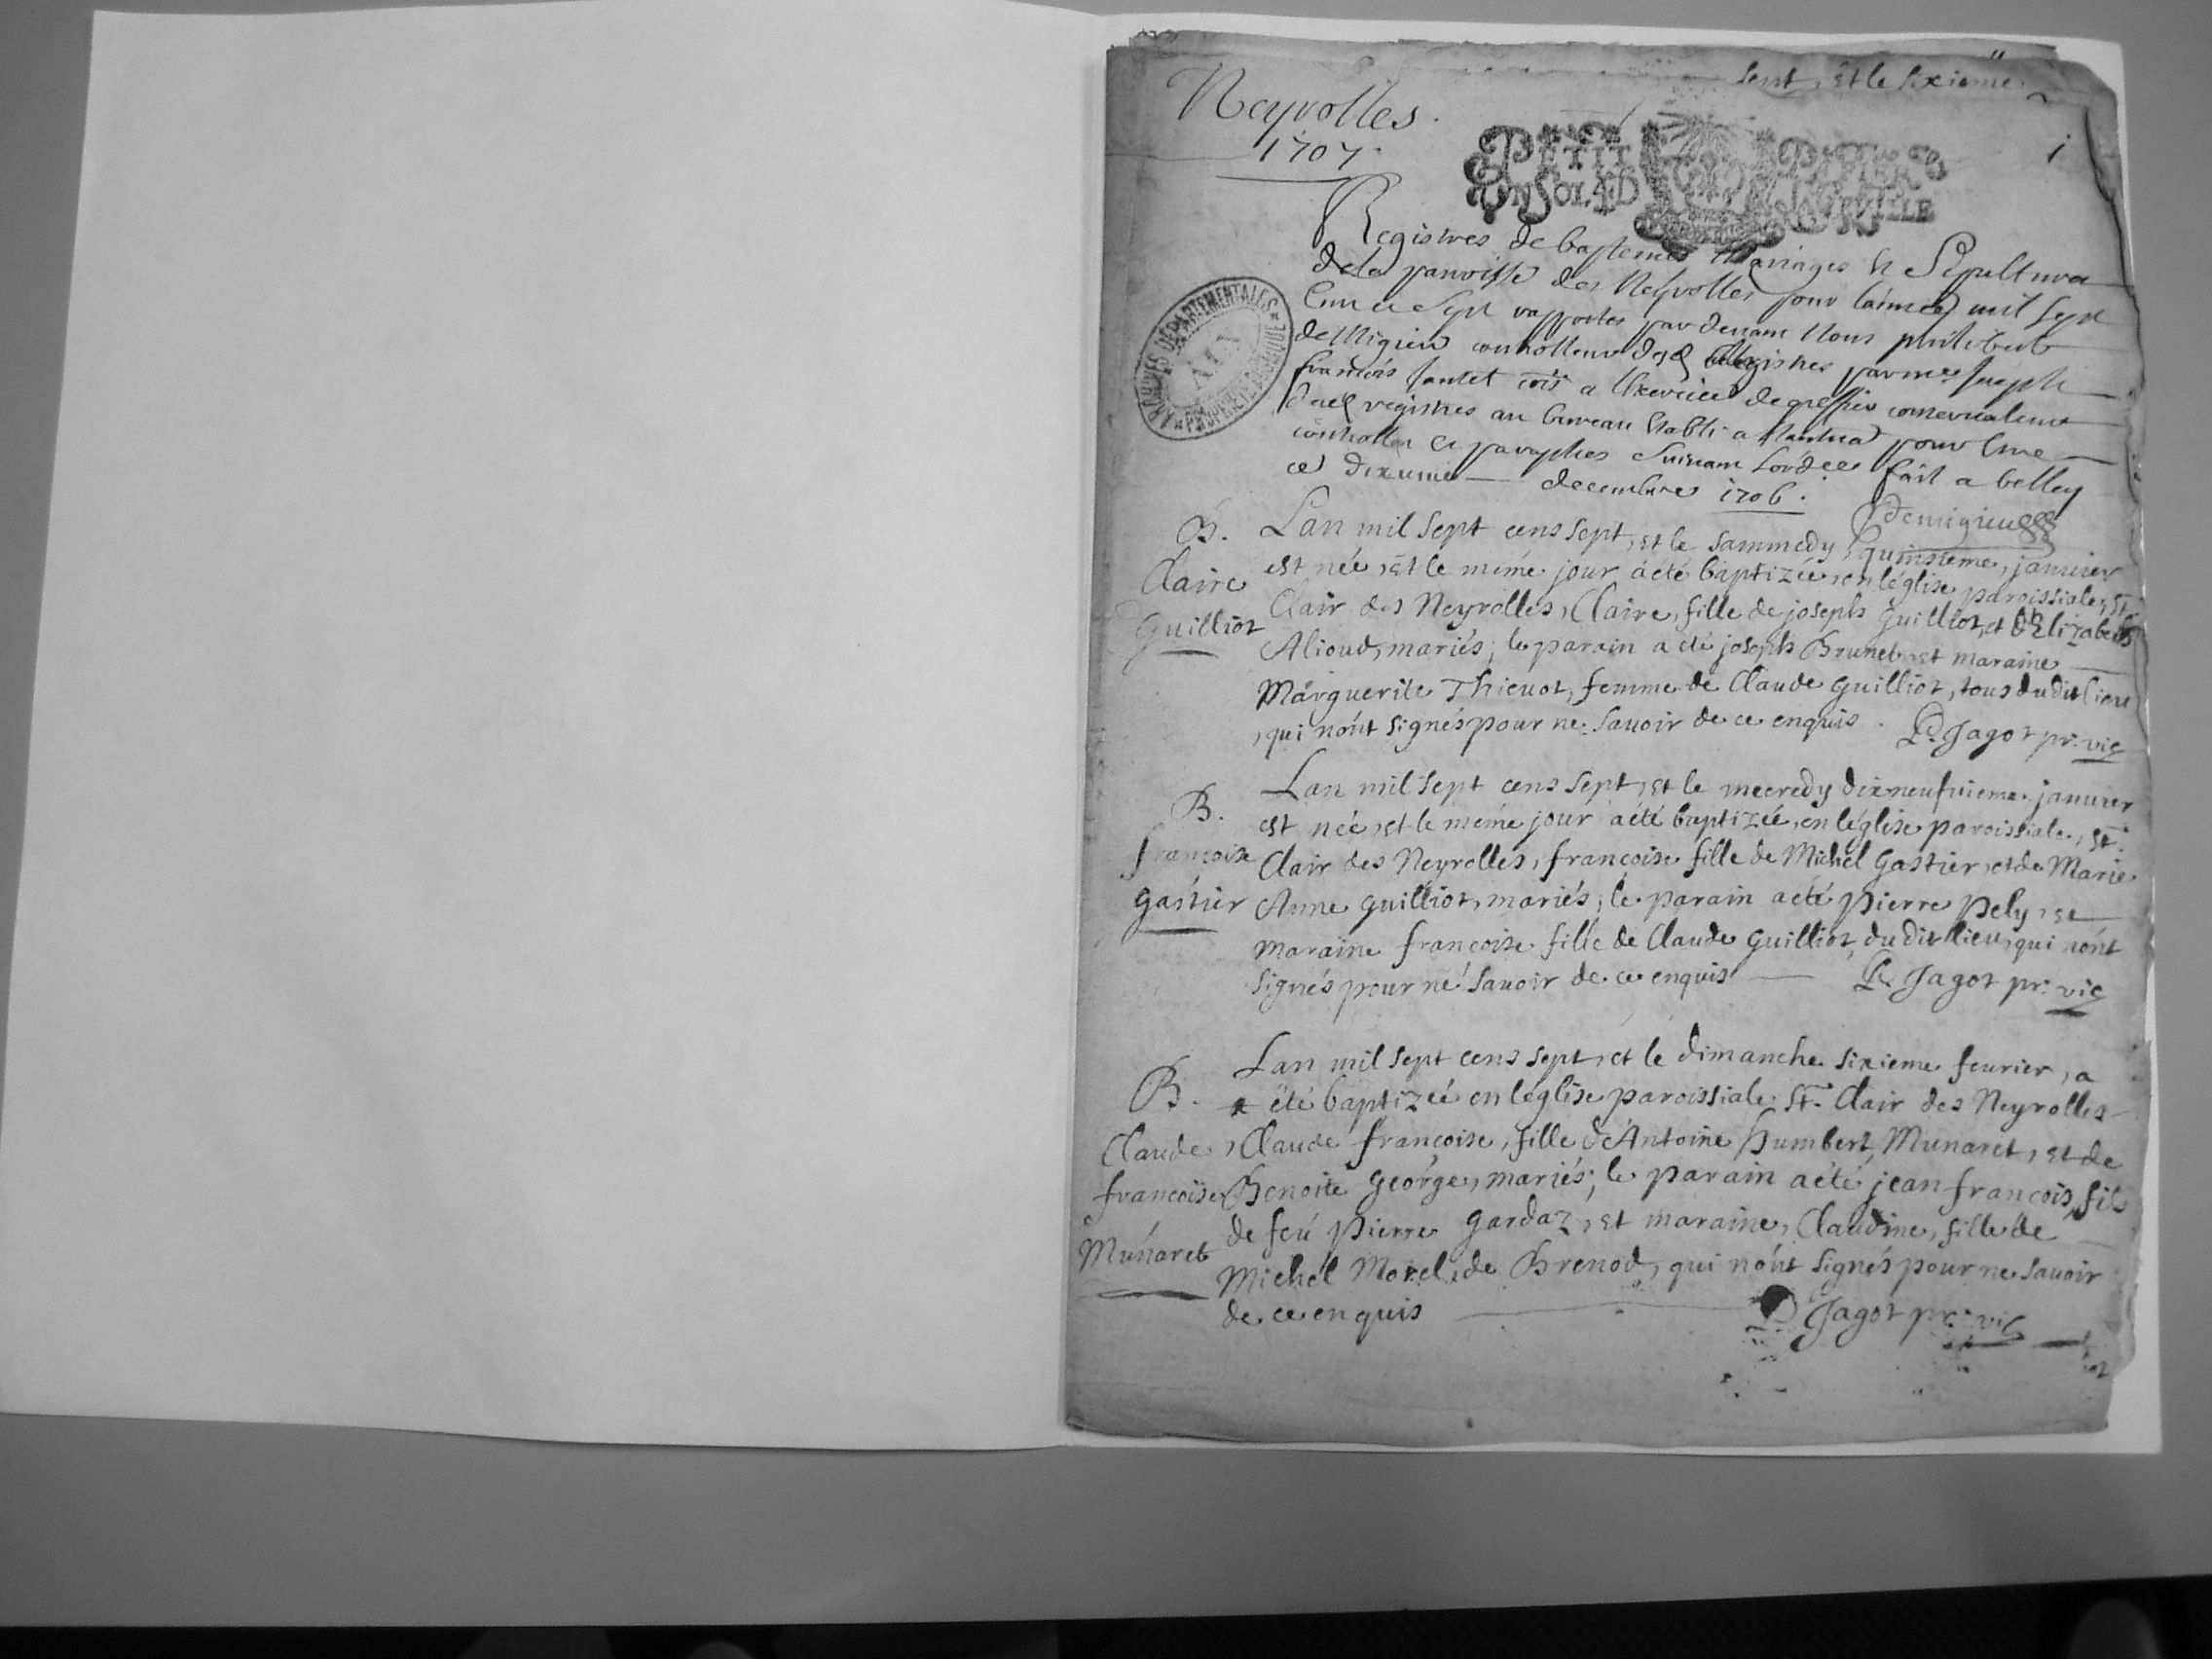 sept, et le sixieme
Neyrolles.
1707.
1
PETIT PAPIER
UN SOL 4 D LA FEUILLE
ARCHIVES DÉPARTEMENTALES
AIN
PROPRIÉTÉ PUBLIQUE
Registres de baptemes mariages et Sepultures
de la parroisse des Neyrolles pour lannee mil sept
cent et sept rapportes par devant Nous philibert
de Migieu controlleur desd Registres par me Joseph
francois Jantet cõis a l'exercice de greffier conservateur
desd registres au bureau etabli a Nantua pour etre
controllés et paraphes suivant Lordce fait a belley
ce dixieme decembre 1706.
demigieu
B. Lan mil sept cens sept, et le sammedy, quinsieme, januier
Claire est née, et le méme jour a été baptizée, en léglise paroissiale, St.
Guilliot Clair des Neyrolles, Claire, fille de joseph Guilliot, et d'Elizabeth
Alioud, mariés; le parain a été joseph Brunet, et maraine
Marguerite Thieuot, femme de Claude Guilliot, tous dudit lieu
, qui nónt signés pour ne sauoir de ce enquis. P. Jagot pr. vic
Lan mil sept cens sept, et le mecredy dixneufuieme januier
B. est née, et le méme jour a été baptizée, en léglise paroissiale, St.
francoise Clair des Neyrolles, francoise fille de Michel Gastier, et de Marie
gastier Anne Guilliot, mariés; le parain a été pierre pely, et
maraine francoise fille de Claude Guilliot, du dit lieu, qui nónt
signés pour né sauoir de ce enquis P. Jagot pr. vic
Lan mil sept cens sept, et le dimanche sixieme feurier, a
B. été baptizeé en léglise paroissiale St. Clair des Neyrolles
Claude , Claude francoise, fille d'Antoine Humbert, Munaret, et de
francoise Benoite George, mariés; le parain a été jean francois, fils
de feú pierre Gardaz, et maraine, Claudine, fille de
Múnaret Michél Morel, de Brenod, qui nónt signés pour ne sauoir
de ce enquis P Jagot pr. vic